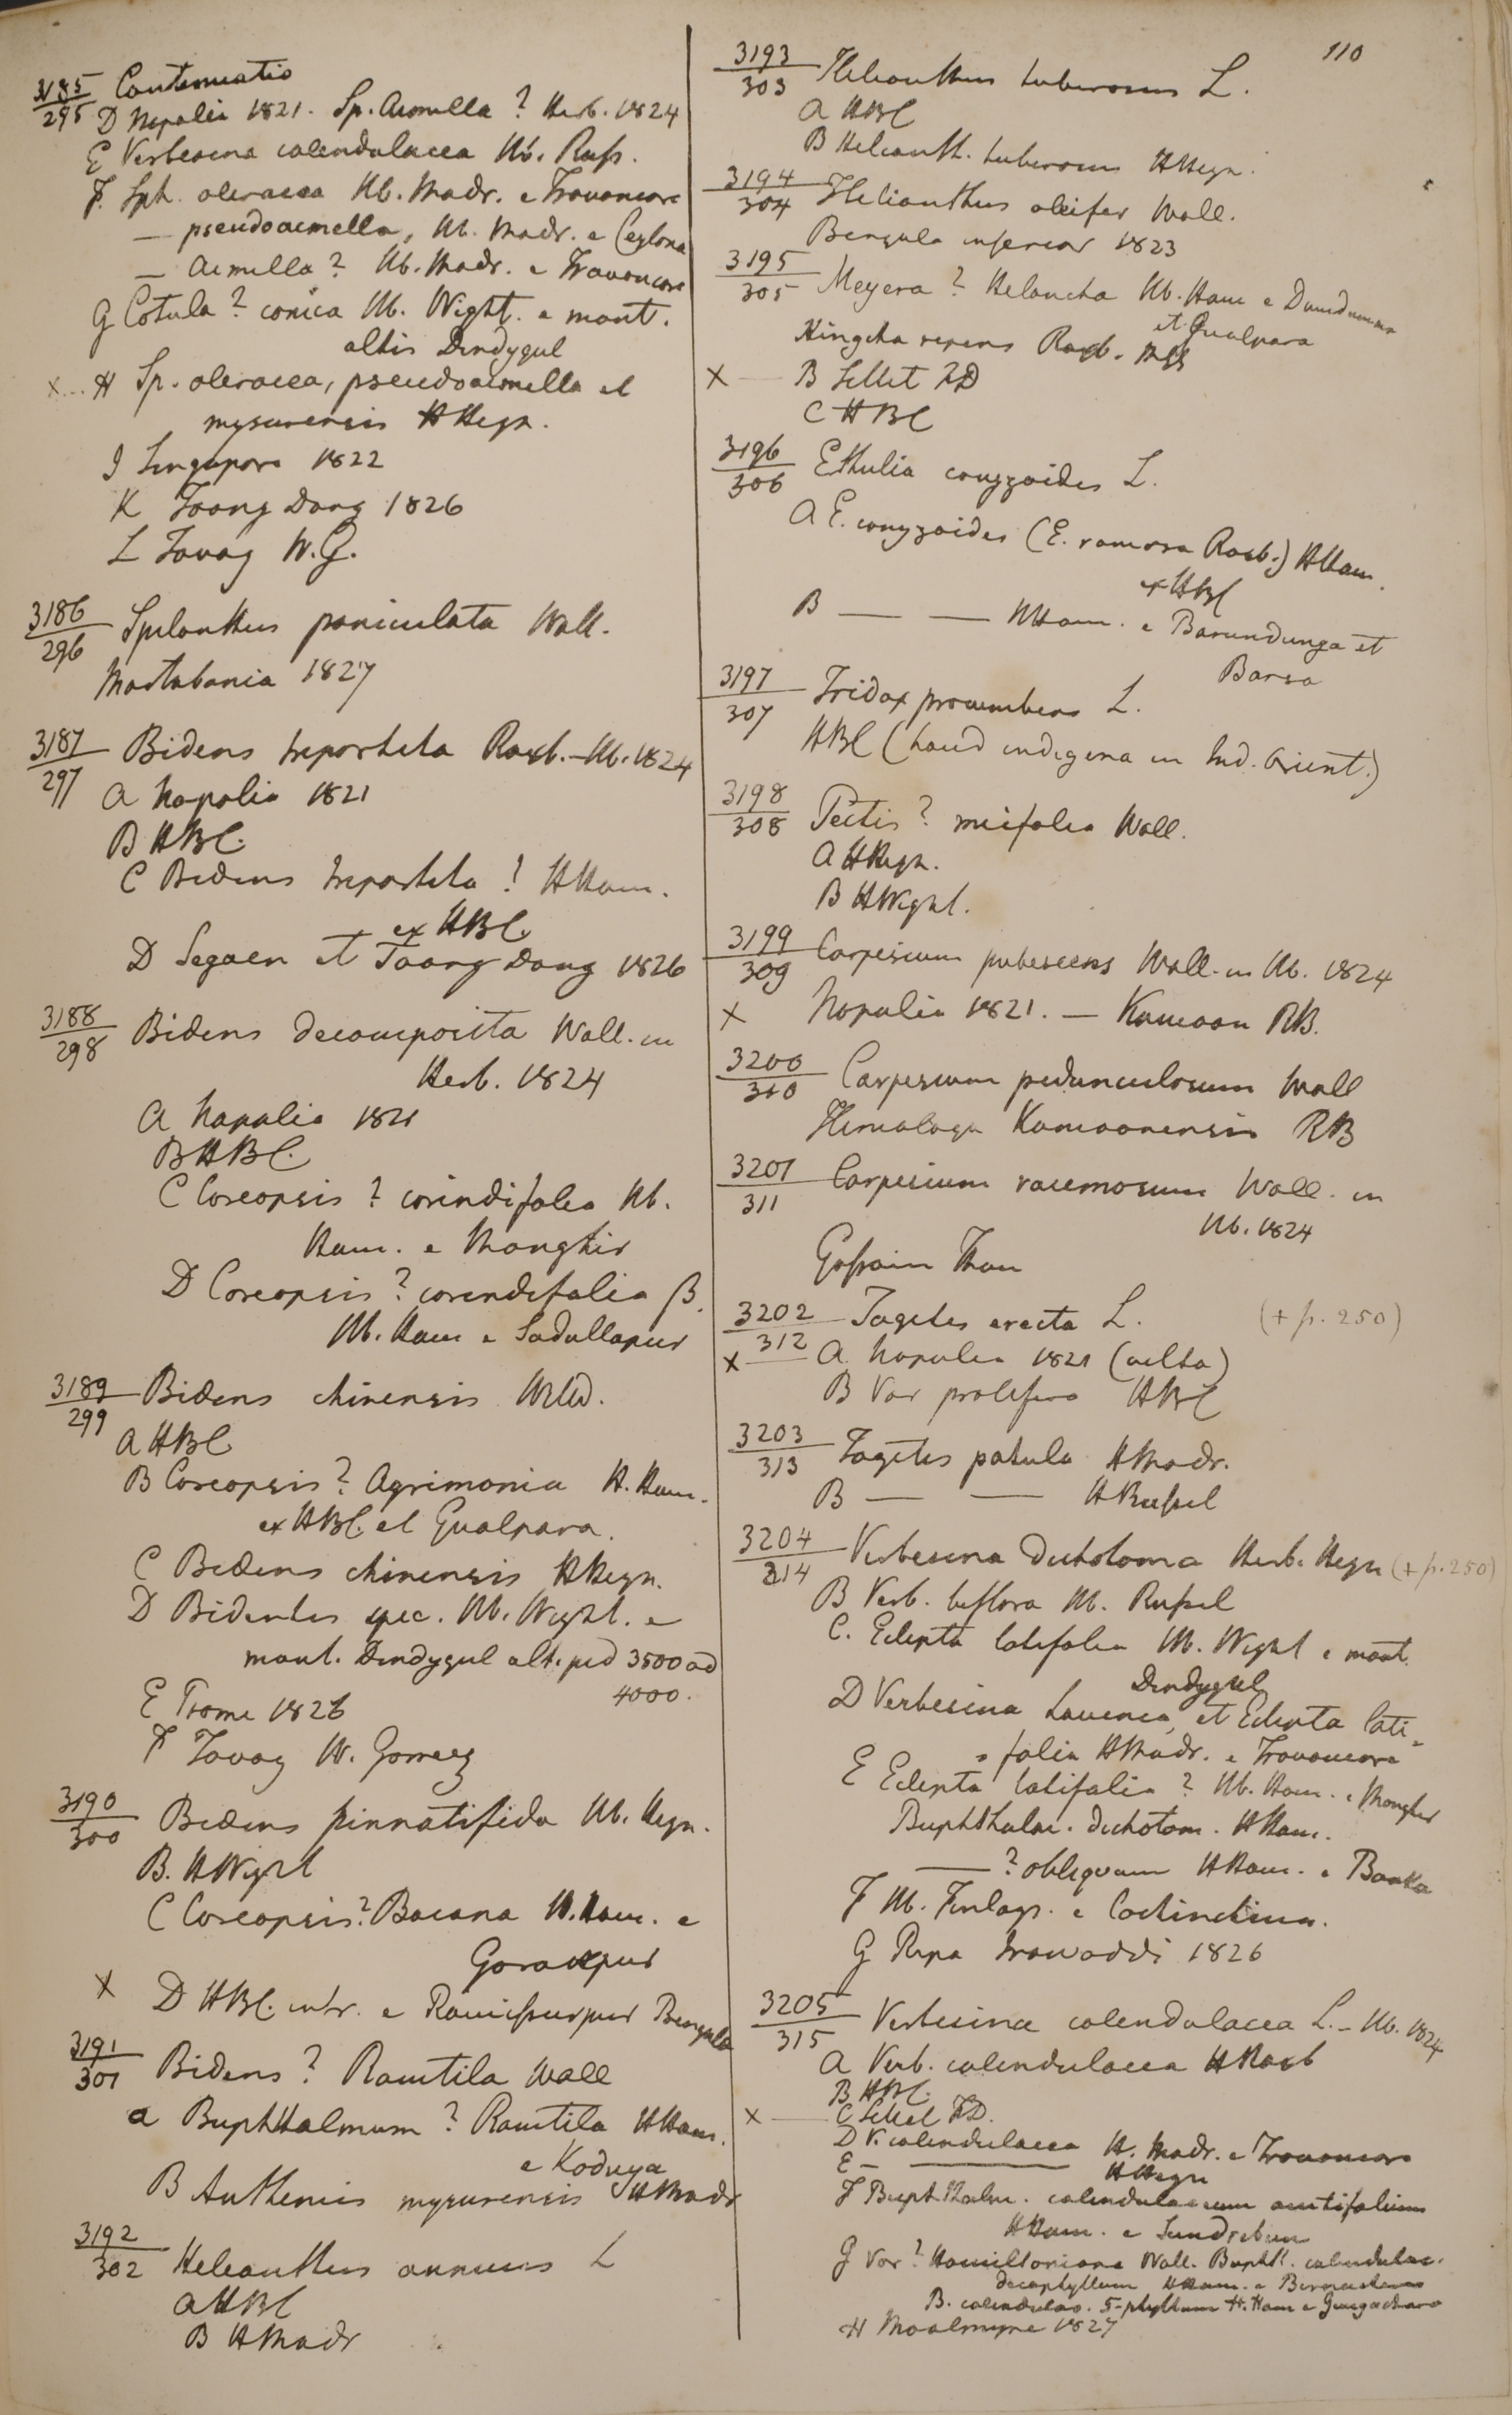 110
3185/295 Continuatio
D Napalia 1821. Sp. Acmella? Herb. 1824
E Verbesina calendulacea Hb. Russ.
F. Sph. oleracea Hb. Madr. e Travancore
— pseudoacmella, Hb. Madr. e Ceylona
— Acmella? Hb. Madr. e Travancore
G Cotula? conica Hb. Wight. e mont.
altis Dindygul
x H Sp. oleracea, pseudoacmella et
mysurensis HHeyn.
I Singapore 1822
K Taong Dong 1826
L Tavoy W.G.
3186/296 Spilanthus paniculata Wall.
Martabania 1827
3187/297 Bidens tripartita Roxb.—Hb. 1824
A Napalia 1821
B HBC.
C Bidens tripartita! HHam.
ex HBC
D Segaen et Taong Dong 1826
3188/298 Bidens decomposita Wall. in
Herb. 1824
A Napalia 1821
B HBC.
C Coreopsis? corindifolia Hb.
Ham. e Monghir
D Coreopsis? corindifolia β.
Hb. Ham e Sadullapur
3189/299 Bidens chinensis Willd.
A HBC
B Coreopsis? Agrimonia H. Ham.
ex HBC. et Gualpara.
C Bidens chinensis HHeyn.
D Bidentis spec. Hb. Wight. e
mont. Dindygul alt. ped 3500 ad
4000.
E Prome 1826
F Tavoy W. Gomez
3190/300 Bidens pinnatifida Hb. Heyn.
B. HWight
C Coreopsis? Bacana H. Ham. e
Gorakpur
x D HBC. intr. e Bengala
3191/301 Bidens? Ramtila Wall
a Buphthalmum? Ramtila HHam.
e Koduya
B Anthemis mysurensis HMadr
3192/302 Helianthus annuus L
A HBC
B HMadr
3193/303 Helianthus tuberosus L.
A HBC
B Helianth. tuberosus HHeyn.
3194/304 Helianthus oleifer Wall.
Bengala inferior 1823
3195/305 Meyera? Helancha Hb. Ham e Dumdumma
et Gualpara
Hingcha repens Roxb. Mss
x — B Sillet FD
C HBC
3196/306 Ethulia conyzoides L.
A E. conyzoides (E. ramosa Roxb.) HHam.
ex HBC
B — — HHam. e Barundunga et
Barsa
3197/307 Tridax procumbens L.
HBC (haud indigena in Ind. Orient.)
3198/308 Pectis? Wall.
A HHeyn.
B HWight.
3199/309 Carpesium pubescens Wall. in Hb. 1824
x Napalia 1821. — Kamaon RB.
3200/310 Carpesium pedunculosum Wall
Himalaya Kamaonensis RB
3201/311 Carpesium racemosum Wall. in
Hb. 1824
Gossain Than
3202/312 Tagetes erecta L. (+ p. 250)
x — A Napalia 1821 (culta)
B Var prolifera HBC
3203/313 Tagetes patula HMadr.
B — — HRussel
3204/314 Verbesina dichotoma Herb. Heyn (+ p. 250)
B Verb. biflora Hb. Russel
C. Eclipta latifolia Hb. Wight e mont.
Dindygul
D Verbesina Lavenia, et Eclipta lati-
folia HMadr. e Travancore
E Eclipta latifolia? Hb. Ham. e Monghir
Buphthalm. dichotom. HHam.
—? obliquum HHam. e Banka
F Hb. Finlays. e Cochinchina.
G Ripa Irawaddi 1826
3205/315 Verbesina calendulacea L.—Hb. 1824
A Verb. calendulacea HRoxb
B HBC.
x — C Sillet FD.
D V. calendulacea H. Madr. e Travancore
E — — HHeyn
F Buphthalm. calendulaceum acutifolium
HHam. e Sundrebun
G Var? Hamiltoniana Wall. Buphth. calendulac.
decaphyllum HHam. e
B. calendulac. 5-phyllum H. Ham e
H Moalmyne 1827